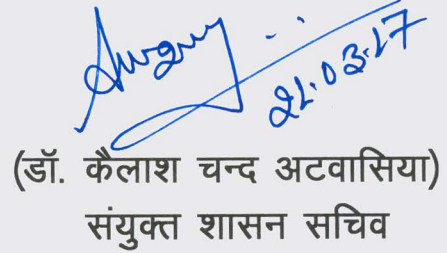 21.03.17
(डॉ. कैलाश चन्द अटवासिया)
संयुक्त शासन सचिव